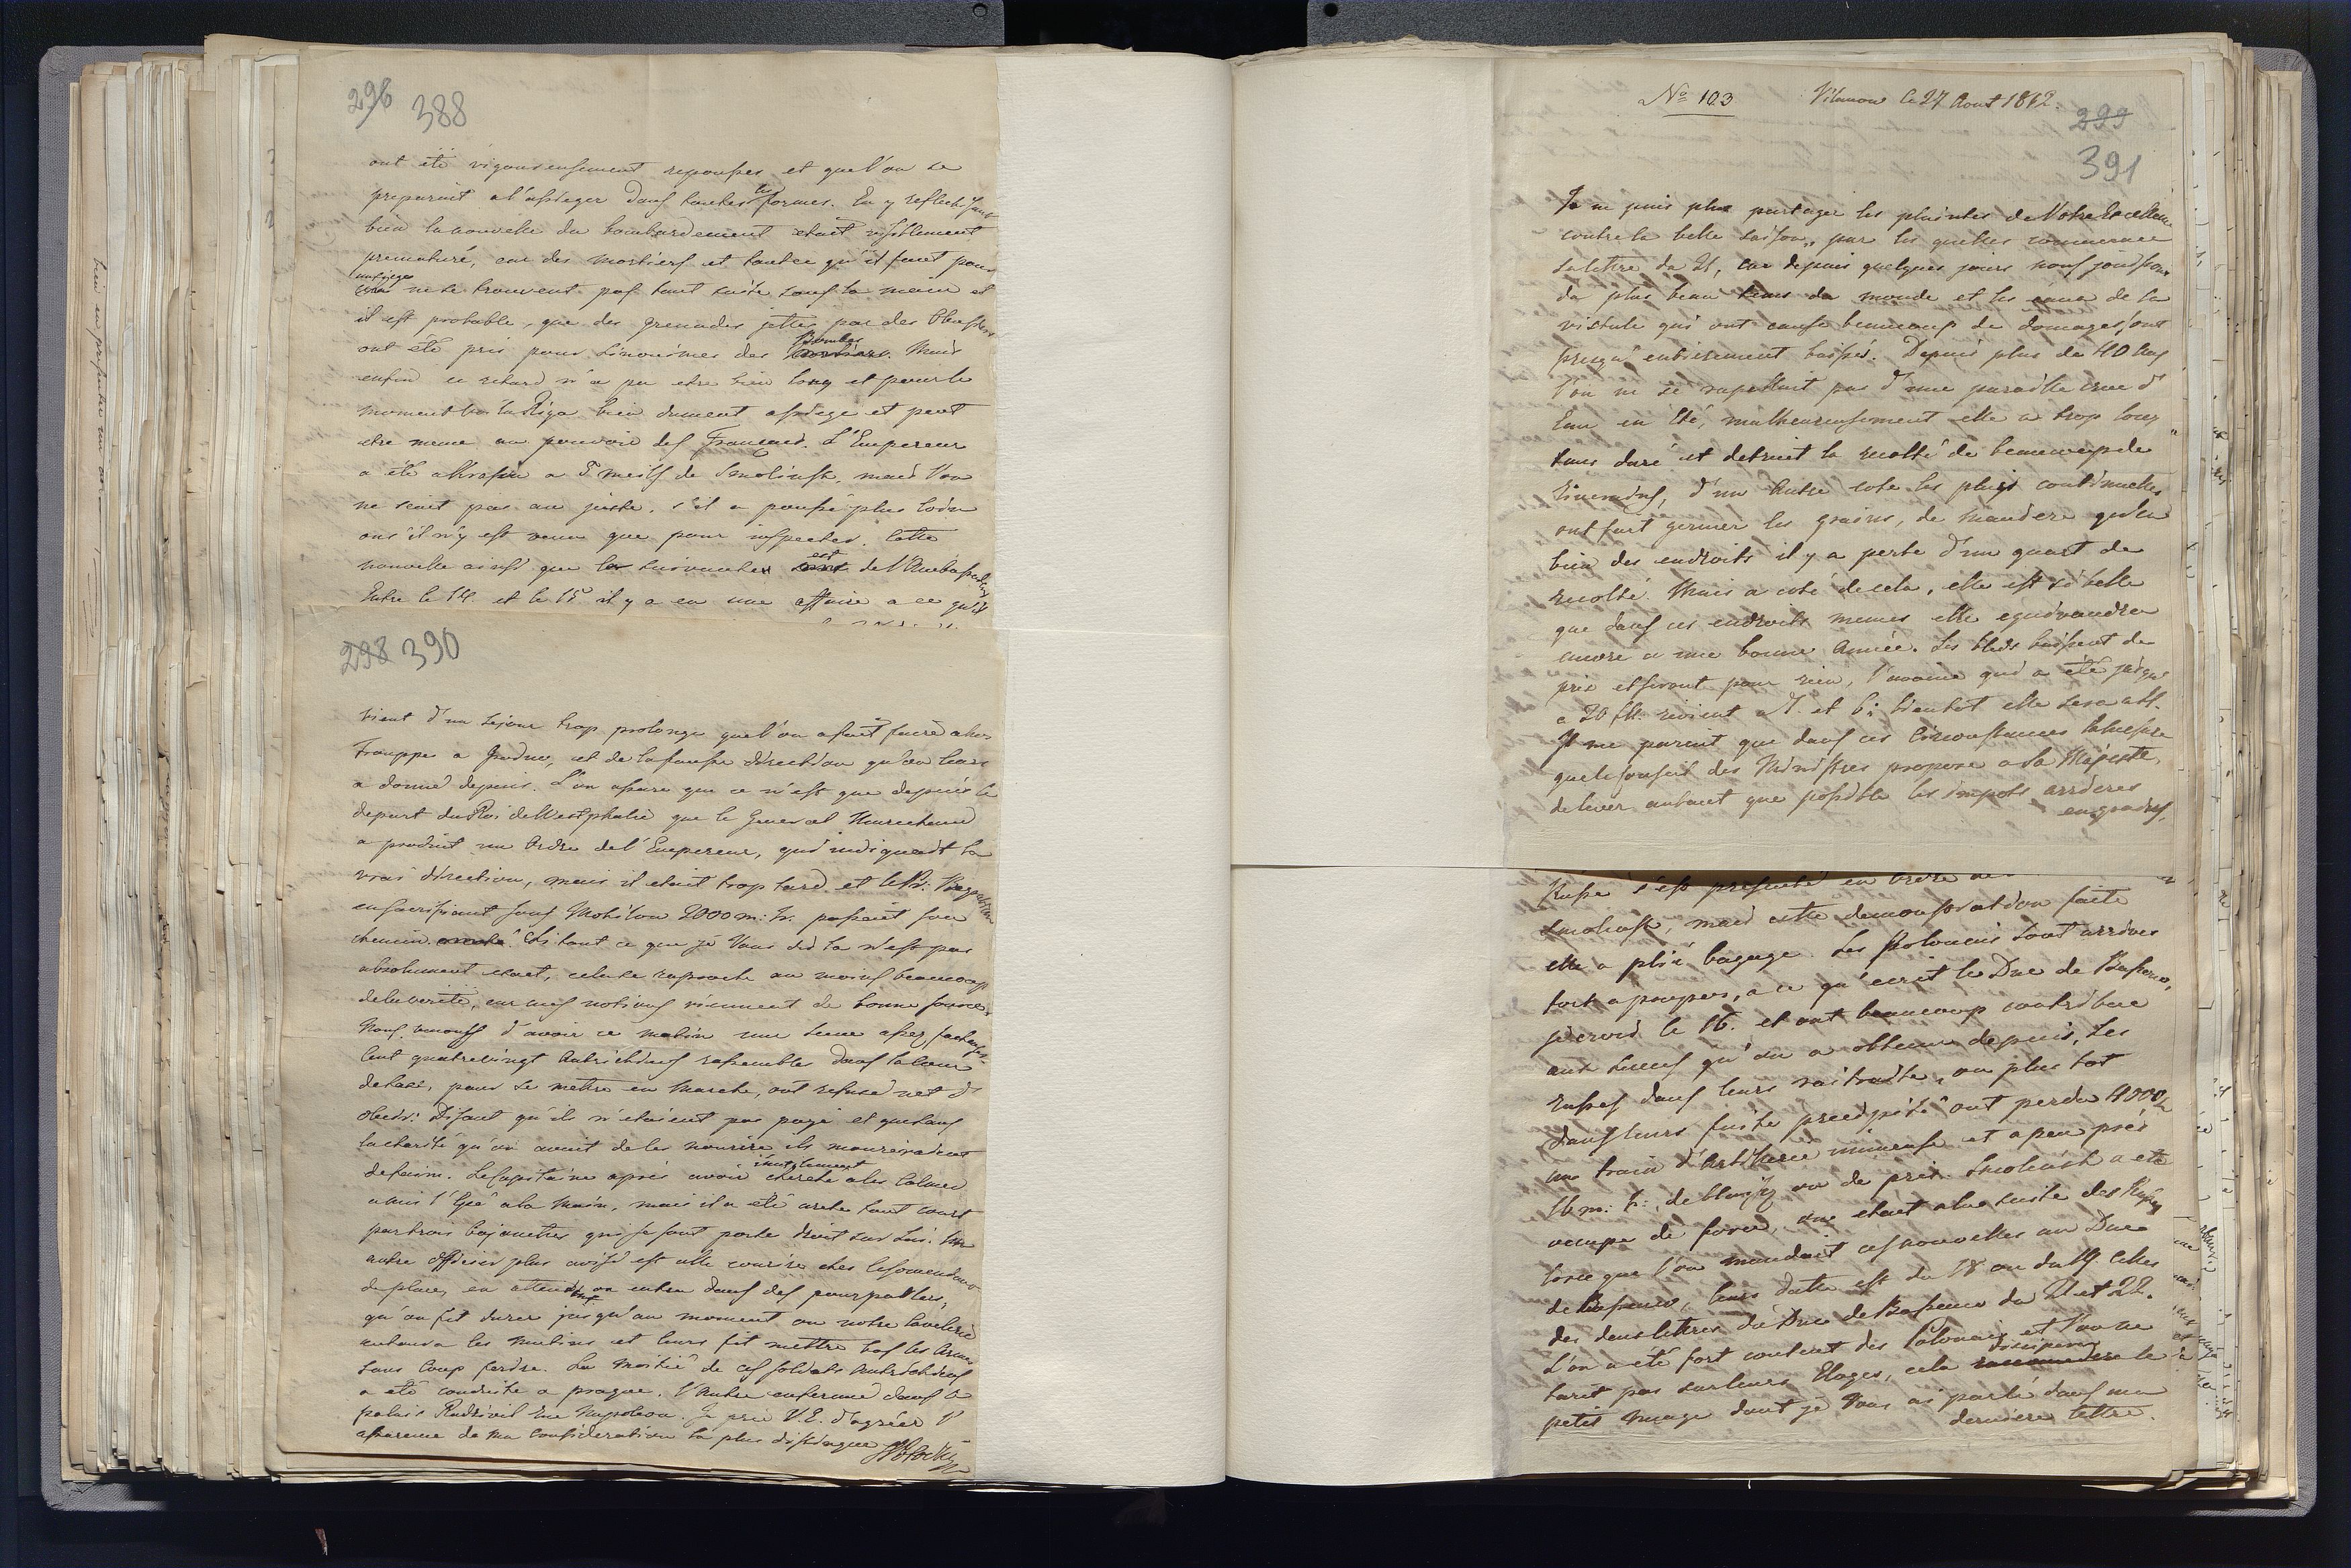 296 388
ont été vigoureusement repoussés et que l'on se
preparait a l'assieger dans toutes les formes. En y reflechissant
bien la nouvelle du bombardement etait visiblement
prematuré, car des mortiers et tout ce qu'il faut pour
un siege ne se trouvent pas tout suite sous la main et
il est probable, que des grenades jettes par des Obusiers
ont été pris pour sinonimes des Bombes. Mais
enfin ce retard n'a pu etre bien long et pour le
moment voila Riga bien dument assiege et peut
etre meme au pouvoir des Français. L'Empereur
a été a 5 meils de Smolinsk, mais l'on
ne sait pas au juste, s'il a poussé plus loin
ou s'il n'y est venu que pour inspecter. Cette
nouvelle ainsi que la suivante est de l'Ambassadeur
Entre le 14. et le 15 il y a eu une affaire a ce qu'il
298 390
vient d'un sejour trop prolongé que l'on a fait faire a nos
Trouppes a Grodno, et de la fausse direction qu'on leurs
a donné depuis. L'on assure que ce n'est que depuis le
depart du Roi de Westphalie que le General Marchand
a produit un Ordre de l'Empereur, qui indiquait la
vrai direction, mais il etait trop tard et le Pr: Bagration
en sacrifiant sous Mohilow 2000 m: h. passait son
chemin. Si tout ce que je Vous dis la n'est pas
absolument exact, cela se raproche au moins beaucoup
de la verité, car mes notions viennent de bonne source.
Nous venons d'avoir ce matin une scene assez facheuse
Cent quatrevingt Autrichiens rassemble dans la cour
de Saxe, pour se mettre en marche, ont refusé net d'
obeir: disant qu'ils n'etaient pas payé et que sans
la charité qu'on avait de les nourire ils mouriraient
de faim. Le Capitaine après avoir inutilement cherché a les calmer
a mis l'Epé a la main, mais il a été areté tout court
par trois bajonettes qui se sont porté droit sur lui. Un
autre officier plus avisé est allé courire chez le Comendant
de place, en attendant on entra dans des pourparlers,
qu'on fit durer jusqu'au moment ou notre Cavelerie
entoura les mutins et leurs fit mettre bas les armes
sans coup ferdre. La moitié de ces soldats Autrichiens
a été conduite a prague, l'Autre enfermé dans le
palais Radzivil rue Napoleon. Je prie V.E. d'agréer l'
assurence de ma consideration la plus distinguée SPotocki
No 103 Vilanow le 27 Aout 1812.
299
391
Je ne puis plus partager les plaintes de Votre Excellence
contre la belle saison, par les quelles commence
sa lettre du 21, car depuis quelques jours nous jouissons
du plus beau tems du monde et les eaux de la
vistule qui ont causé beaucoup de domages, ont
presqu'entierement baissé. Depuis plus de 40 ans
l'on ne se rapellait pas d'une pareille crue d'
Eau en Eté, malheureusement elle a trop long
tems duré et detruit la recolte de beaucoup de
riverains, d'un Autre coté les pluies continuelles
ont fait germer les grains, de maniere qu'en
bien des endroits il y a perte d'un quart de
recolté. Mais a coté de cela, elle est si belle
que dans ces endroits memes elle equivaudra
encore a une bonne Année. Les bleds baissent de
prix et seront pour rien, l'avoine qui a été jusque
a 20 fl. revient a 7. et 6; bientot elle sera a 4 fl.
Il me parait que dans ces circonstances la mesure
que le Conseil des Ministres propose a Sa Majesté,
de lever autant que possible les impots arrières
en grains,
Russe s'est presenté en ordre de
Smolensk, mais cette demonstration faite
elle a plié bagage. Les Polonais sont arrivés
fort a propos, a ce qu'ecrit le Duc de Bassano,
je crois le 16. et ont beaucoup contribué
aux succes qu'on a obtenu depuis. Les
Russes dans leurs raitraite, ou plus tot
dans leurs fuite precipité ont perdu 4000 h
un train d'artilerie immense et a peu près
16 m: h: de blessés ou de pris. Smolensk a été
occupé de force, on etait a la suite des Russes
lorsque l'on mandait ces nouvelles au Duc
de Bassano, leurs datte est du 18 ou du 19. Celles
des deux lettres du Duc de Bassano du 21 et 22.
L'on a été fort content des Polonais et l'on ne
tarit pas sur leurs Eloges, cela dissipera le
petit nuage dont je Vous ai parlé dans ma
derniere lettre.